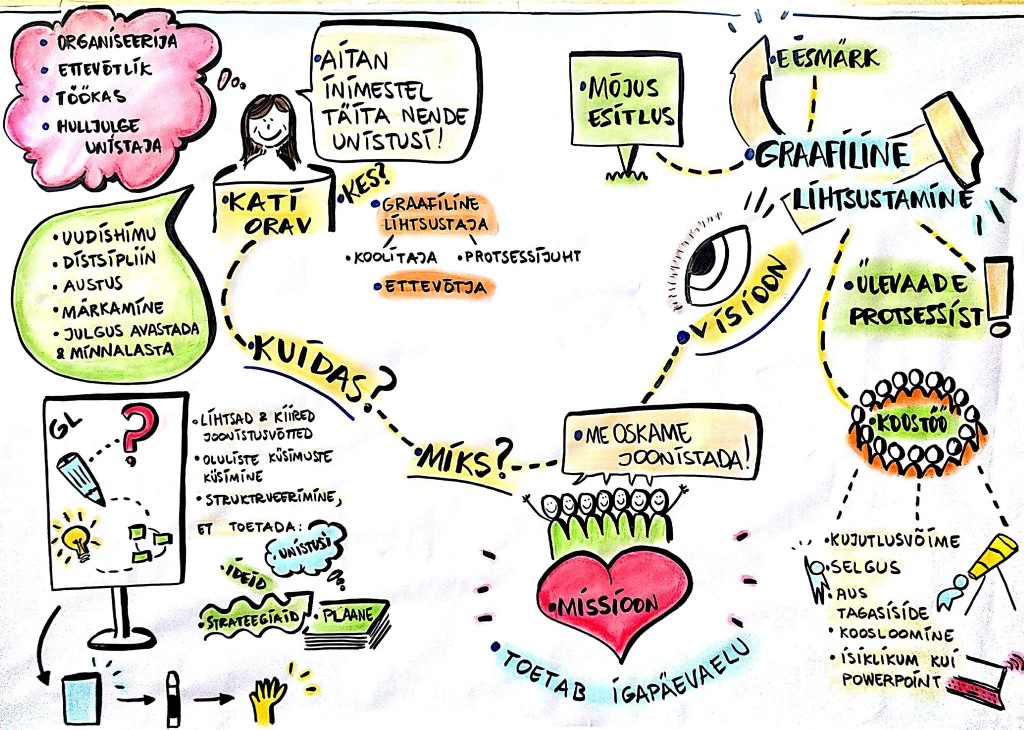 ORGANISEERIJA
ETTEVÕTLIK
TÖÖKAS
HULLJULGE
UNISTAJA
AITAN
INIMESTEL
TÄITA NENDE
UNISTUSI!
KATI
ORAV
KES?
GRAAFILINE
LIHTSUSTAJA
KOOLITAJA
PROTSESSIJUHT
ETTEVÕTJA
UUDISHIMU
DISTSIPLIIN
AUSTUS
MÄRKAMINE
JULGUS AVASTADA
& MINNALASTA
KUIDAS?
GL
?
LIHTSAD & KIIRED
JOONISTUSVÕTTED
OLULISTE KÜSIMUSTE
KÜSIMINE
STRUKTRUEERIMINE,
ET TOETADA:
UNISTUSI
IDEID
STRATEEGIAID
PLAANE
MIKS?
ME OSKAME
JOONISTADA!
MISSIOON
TOETAB IGAPÄEVAELU
VISIOON
MÕJUS
ESITLUS
EESMÄRK
GRAAFILINE
LIHTSUSTAMINE
ÜLEVAADE
PROTSESSIST
!
KOOSTÖÖ
KUJUTLUSVÕIME
SELGUS
AUS
TAGASISIDE
KOOSLOOMINE
ISIKLIKUM KUI
POWERPOINT